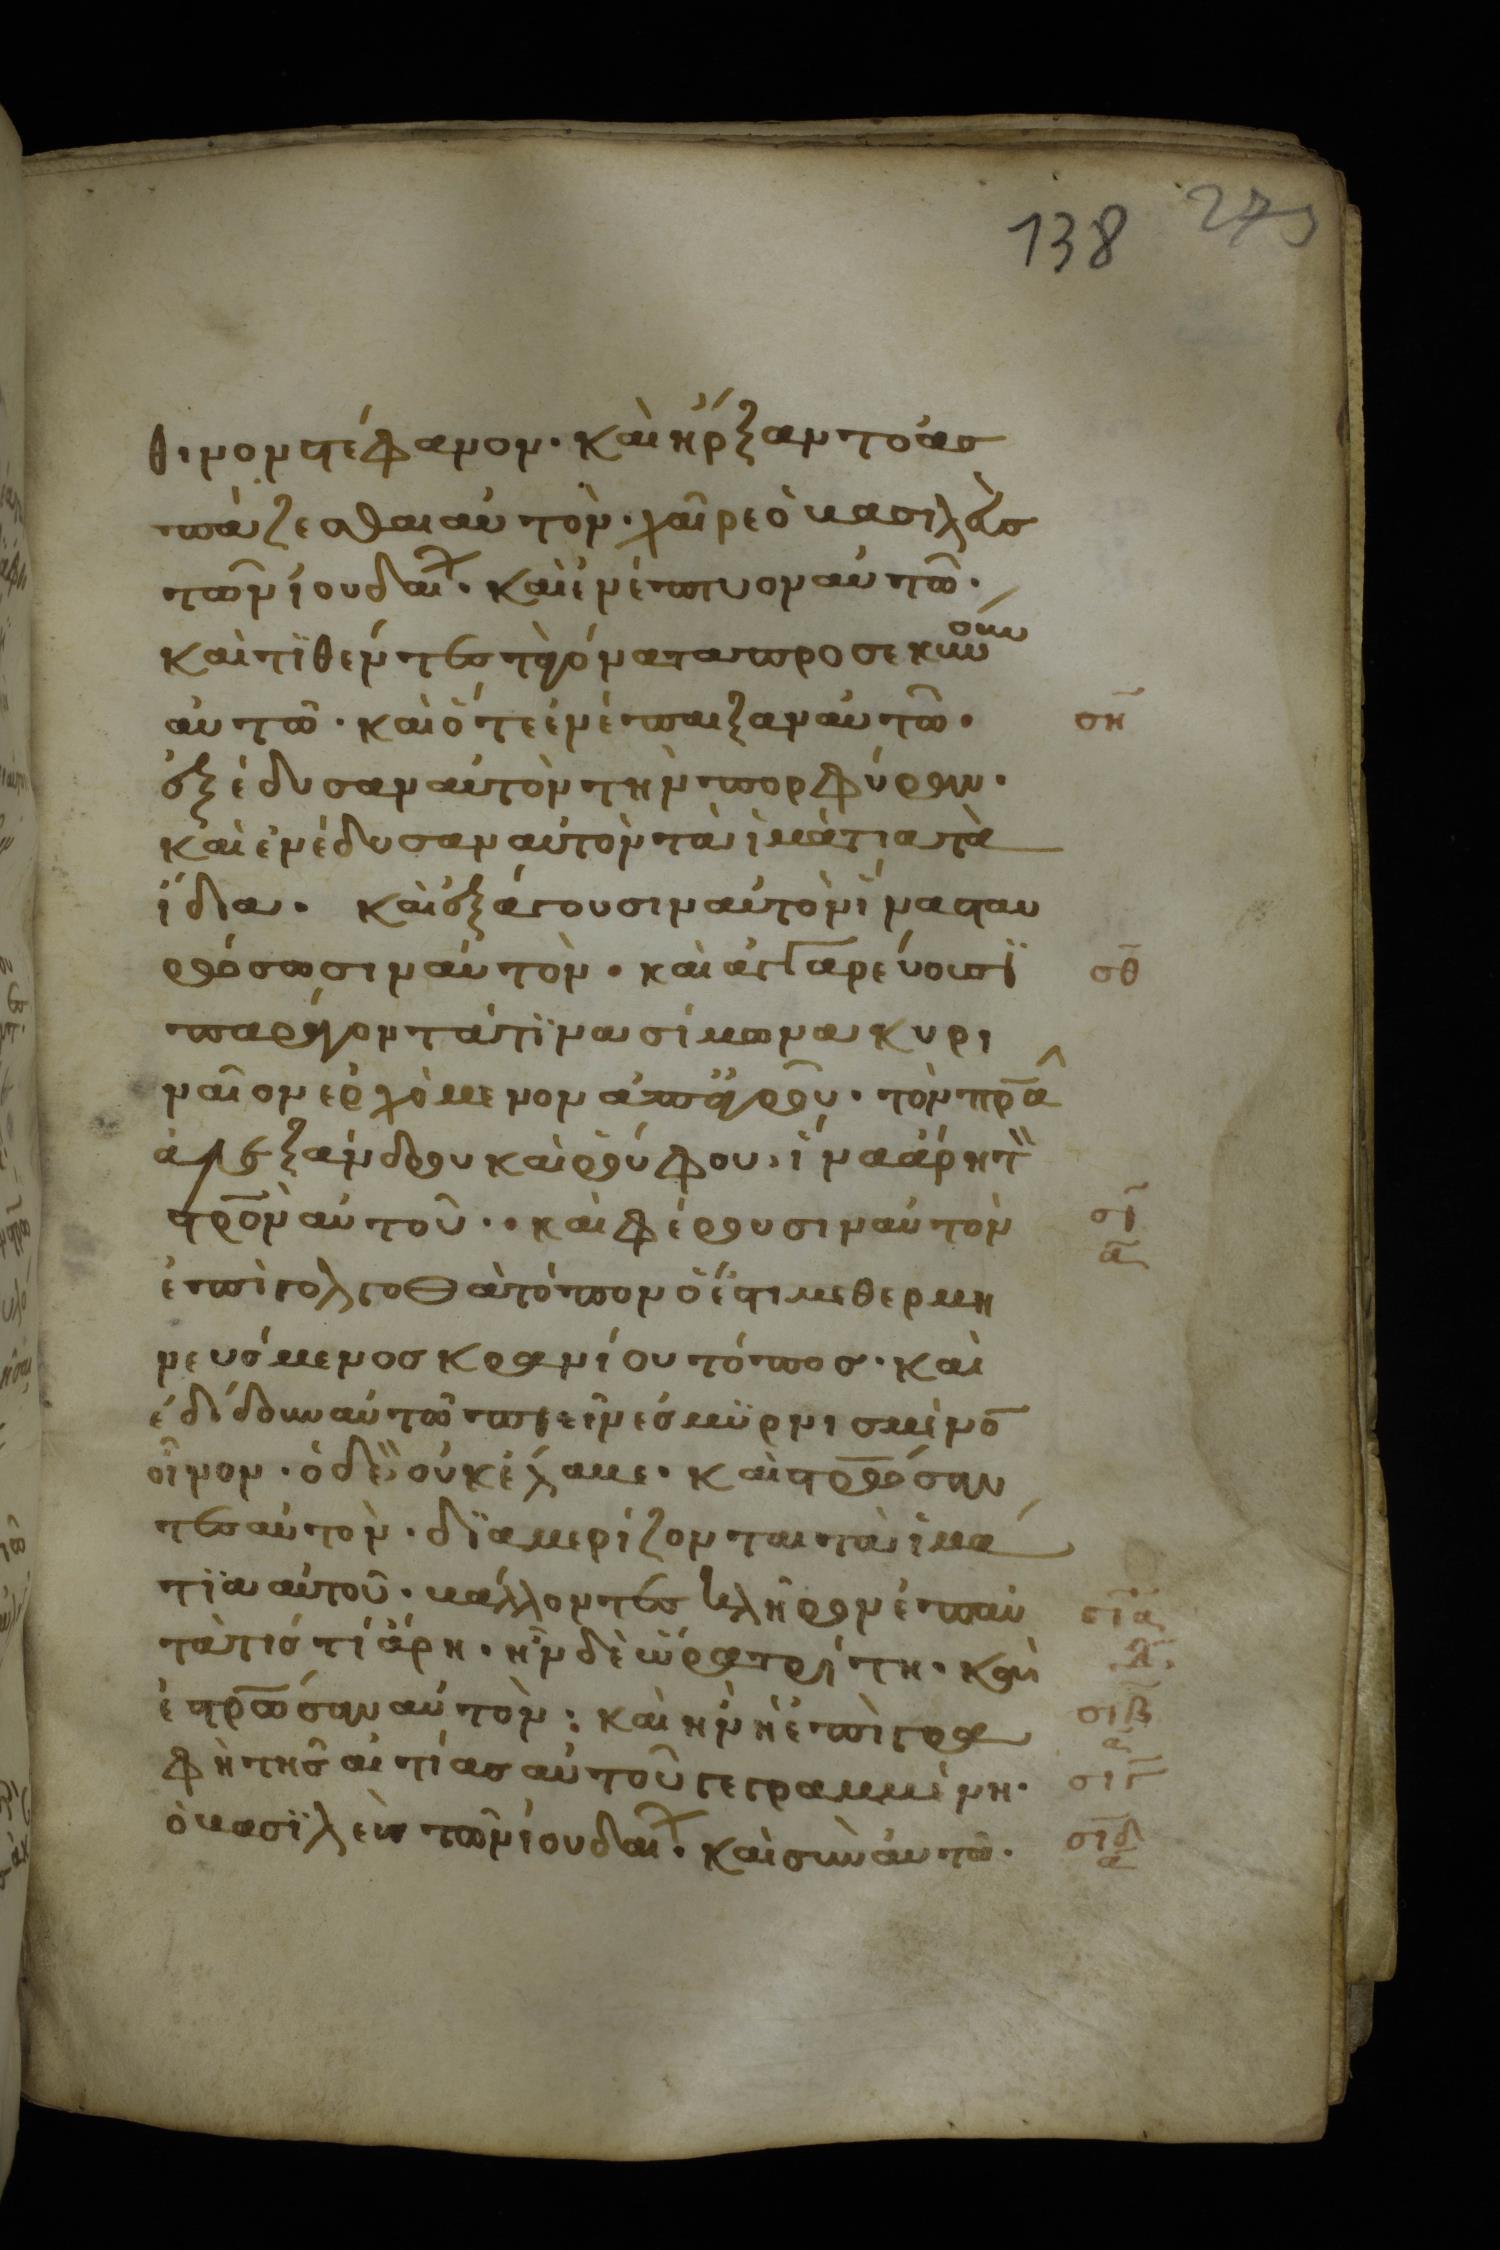 138 273
θινον στέφανον· καὶ ἤρξαντο ἀσ
πάζεσθαι αὐτὸν· χαῖρε ὁ βασιλεὺς
τῶν ἰουδαι· καὶ ἐνέπτυον αὐτῶ·
καὶ τϊθέντες τὰ γόνατα προσεκύνουν
αὐτῶ· καὶ ὅτε ἐνέπαιξαν αὐτῶ· ση
ἐξέδυσαν αὐτὸν τὴν πορφύραν·
καὶ ἐνέδυσαν αὐτὸν τὰ ἱμάτια τὰ
ἴδια· καὶ ἐξάγουσιν αὐτὸν ἵνα σταυ
ρώσωσιν αὐτὸν· καὶ ἀγγαρεύουσϊ σθ
παράγοντά τϊνα σίμωνα κυρι
ναῖον ἐρχόμενον ἀπ ἀγροῦ· τὸν πρα
ἀλεξάνδρου καὶ ῥούφου, ἵνα ἄρη τ
στρον αὐτοῦ·· καὶ φέρουσιν αὐτὸν σι α
ἐπὶ γολγοθᾶ τόπον ὅ ἐστι μεθερμη
νευόμενος κρανίου τόπος· καὶ
ἐδίδουν αὐτῶ πιεῖν ἐσμϋρνισμένο
οἶνον· ὁ δὲ οὐκ ἔλαβε· καὶ στρώσαν
τες αὐτὸν· δϊαμερίζονται τὰ ἱμά
τϊα αὐτοῦ· βάλλοντες κλῆρον ἐπ αὐ σια
τὰ τίς τί ἄρη· ἦν δὲ ὥρα τρίτη· καὶ
ἐστρωσαν αὐτὸν: καὶ ἦν ἡ ἐπιγρα σιβ α
φὴ τῆς αἰτίας αὐτοῦ γεγραμμένη· σιγ
ὁ βασϊλεὺς τῶν ἰουδαι· καὶ σὺν αὐτῶ· σιδ α